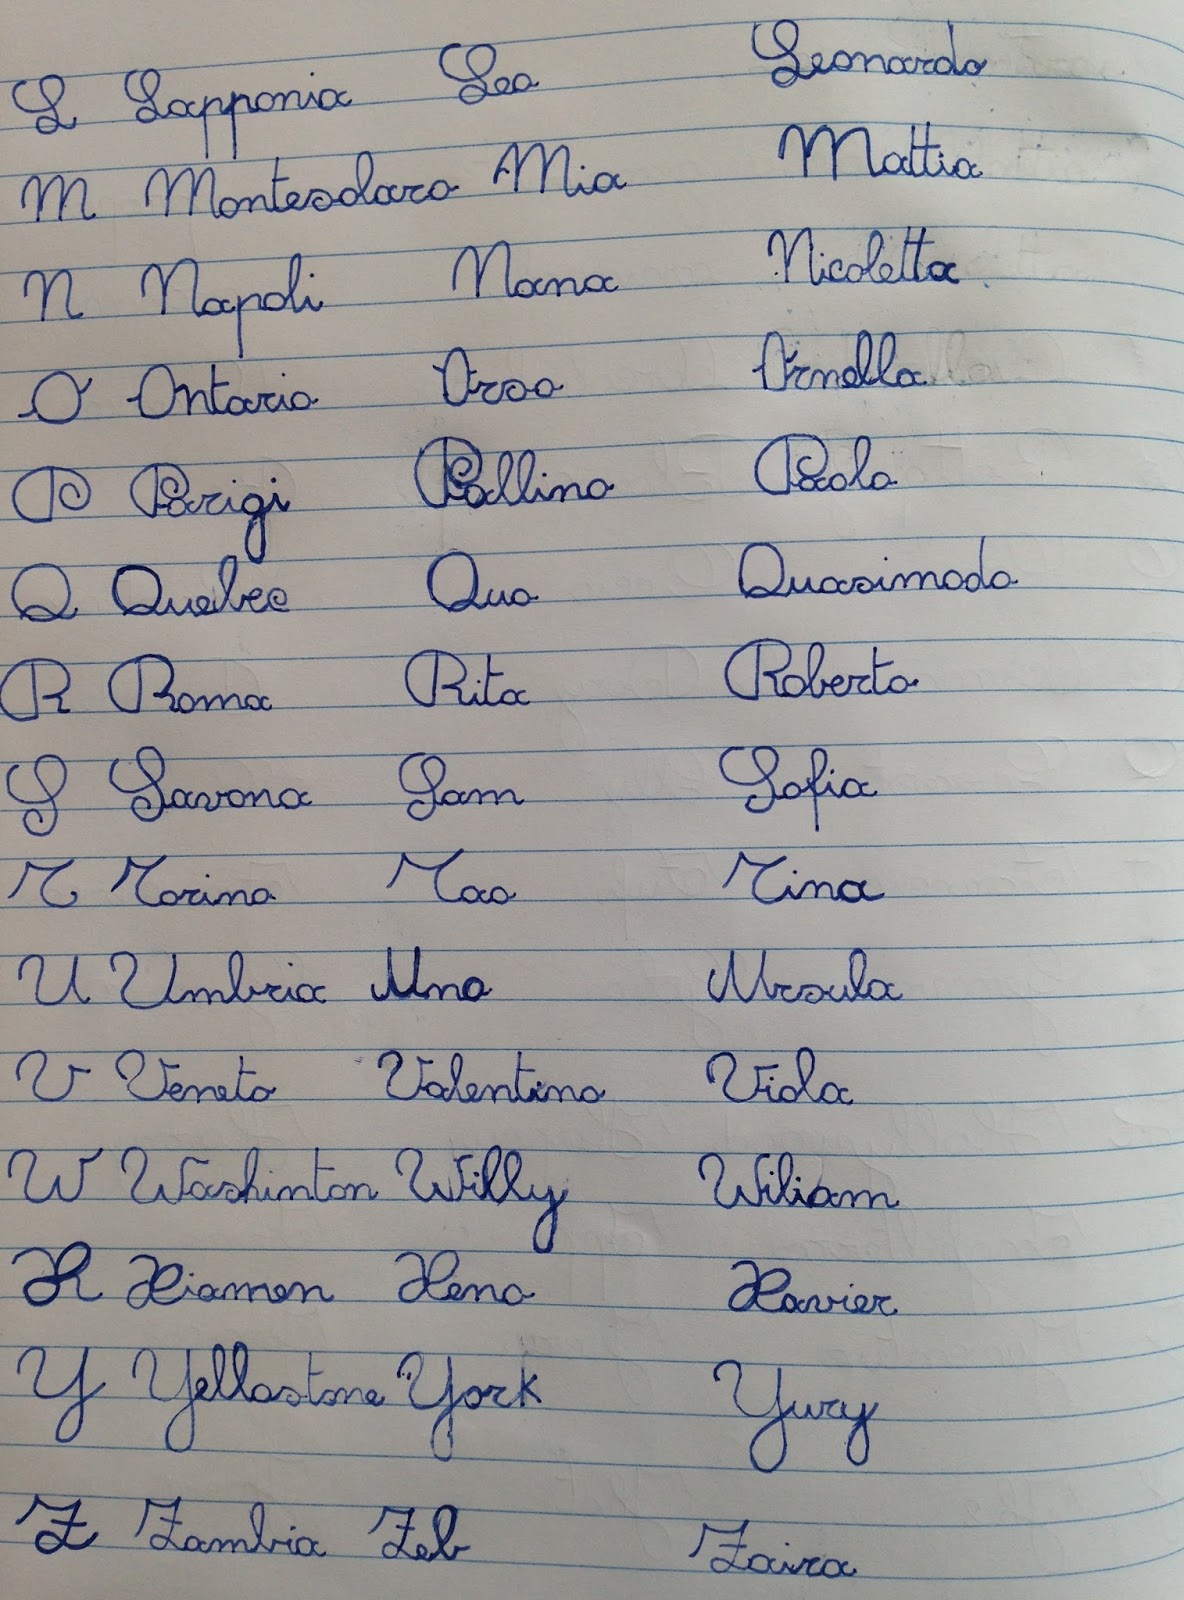 L Lapponia Leo Leonardo
M Montesolaro Mia Mattia
N Napoli Nana Nicoletta
O Ontario Orso Ornella
P Parigi Pallino Paolo
Q Quebec Qua Quasimodo
R Roma Rita Roberto
S Savona Sam Sofia
T Torino Tao Tina
U Umbria Una Ursula
V Veneto Valentino Viola
W Washinton Willy Wiliam
X Xiamen Xena Xavier
Y Yellostone York Yury
Z Zambia Zeb Zaira